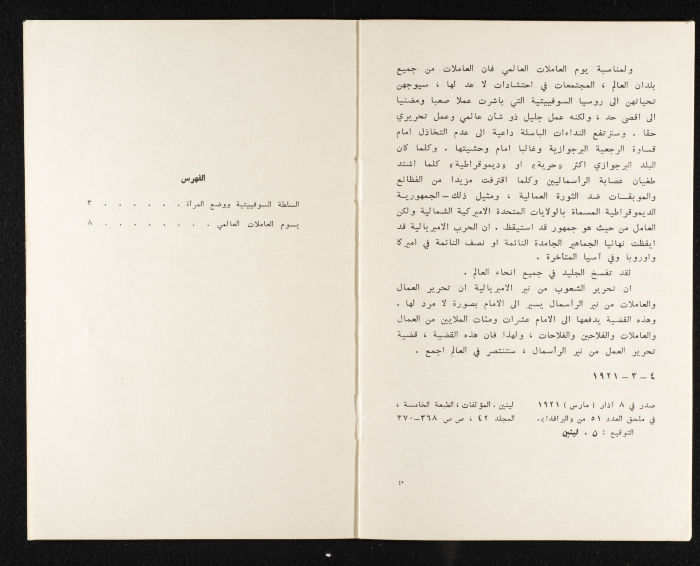 ولمناسبة يوم العاملات العالمي فان العاملات من جميع
بلدان العالم ، المجتمعات في احتشادات لا عد لها ، سيوجهن
تحياتهن الى روسيا السوفييتية التي باشرت عملا صعبا ومضنيا
الى اقصى حد ، ولكنه عمل جليل ذو شأن عالمي وعمل تحريري
حقا . وسترتفع النداءات الباسلة داعية الى عدم التخاذل امام
قساوة الرجعية البرجوازية وغالبا امام وحشيتها . وكلما كان
البلد البرجوازي اكثر «حرية» او «ديموقراطية» كلما اشتد
طغيان عصابة الرأسماليين وكلما اقترفت مزيدا من الفظائع
والموبقات ضد الثورة العمالية ، ومثيل ذلك – الجمهورية
الديموقراطية المسماة بالولايات المتحدة الاميركية الشمالية ولكن
العامل من حيث هو جمهور قد استيقظ . ان الحرب الامبريالية قد
ايقظت نهائيا الجماهير الجامدة النائمة او نصف النائمة في اميركا
واوروبا وفي آسيا المتأخرة .
لقد تفسخ الجليد في جميع انحاء العالم .
ان تحرير الشعوب من نير الامبريالية ان تحرير العمال
والعاملات من نير الرأسمال يسير الى الامام بصورة لا مرد لها .
وهذه القضية يدفعها الى الامام عشرات ومئات الملايين من العمال
والعاملات والفلاحين والفلاحات ، ولهذا فان هذه القضية ، قضية
تحرير العمل من نير الرأسمال ، ستنتصر في العالم اجمع .
٤ – ٣ – ١٩٢١
صدر في ٨ آذار (مارس) ١٩٢١
في ملحق العدد ٥١ من «البرافدا».
التوقيع : ن . لينين
لينين . المؤلفات ، الطبعة الخامسة ،
المجلد ٤٢ ، ص ص ٣٦٨–٣٧٠
١٠
الفهرس
السلطة السوفييتية ووضع المرأة . . . . . . ٣
يوم العاملات العالمي . . . . . . . . ٨